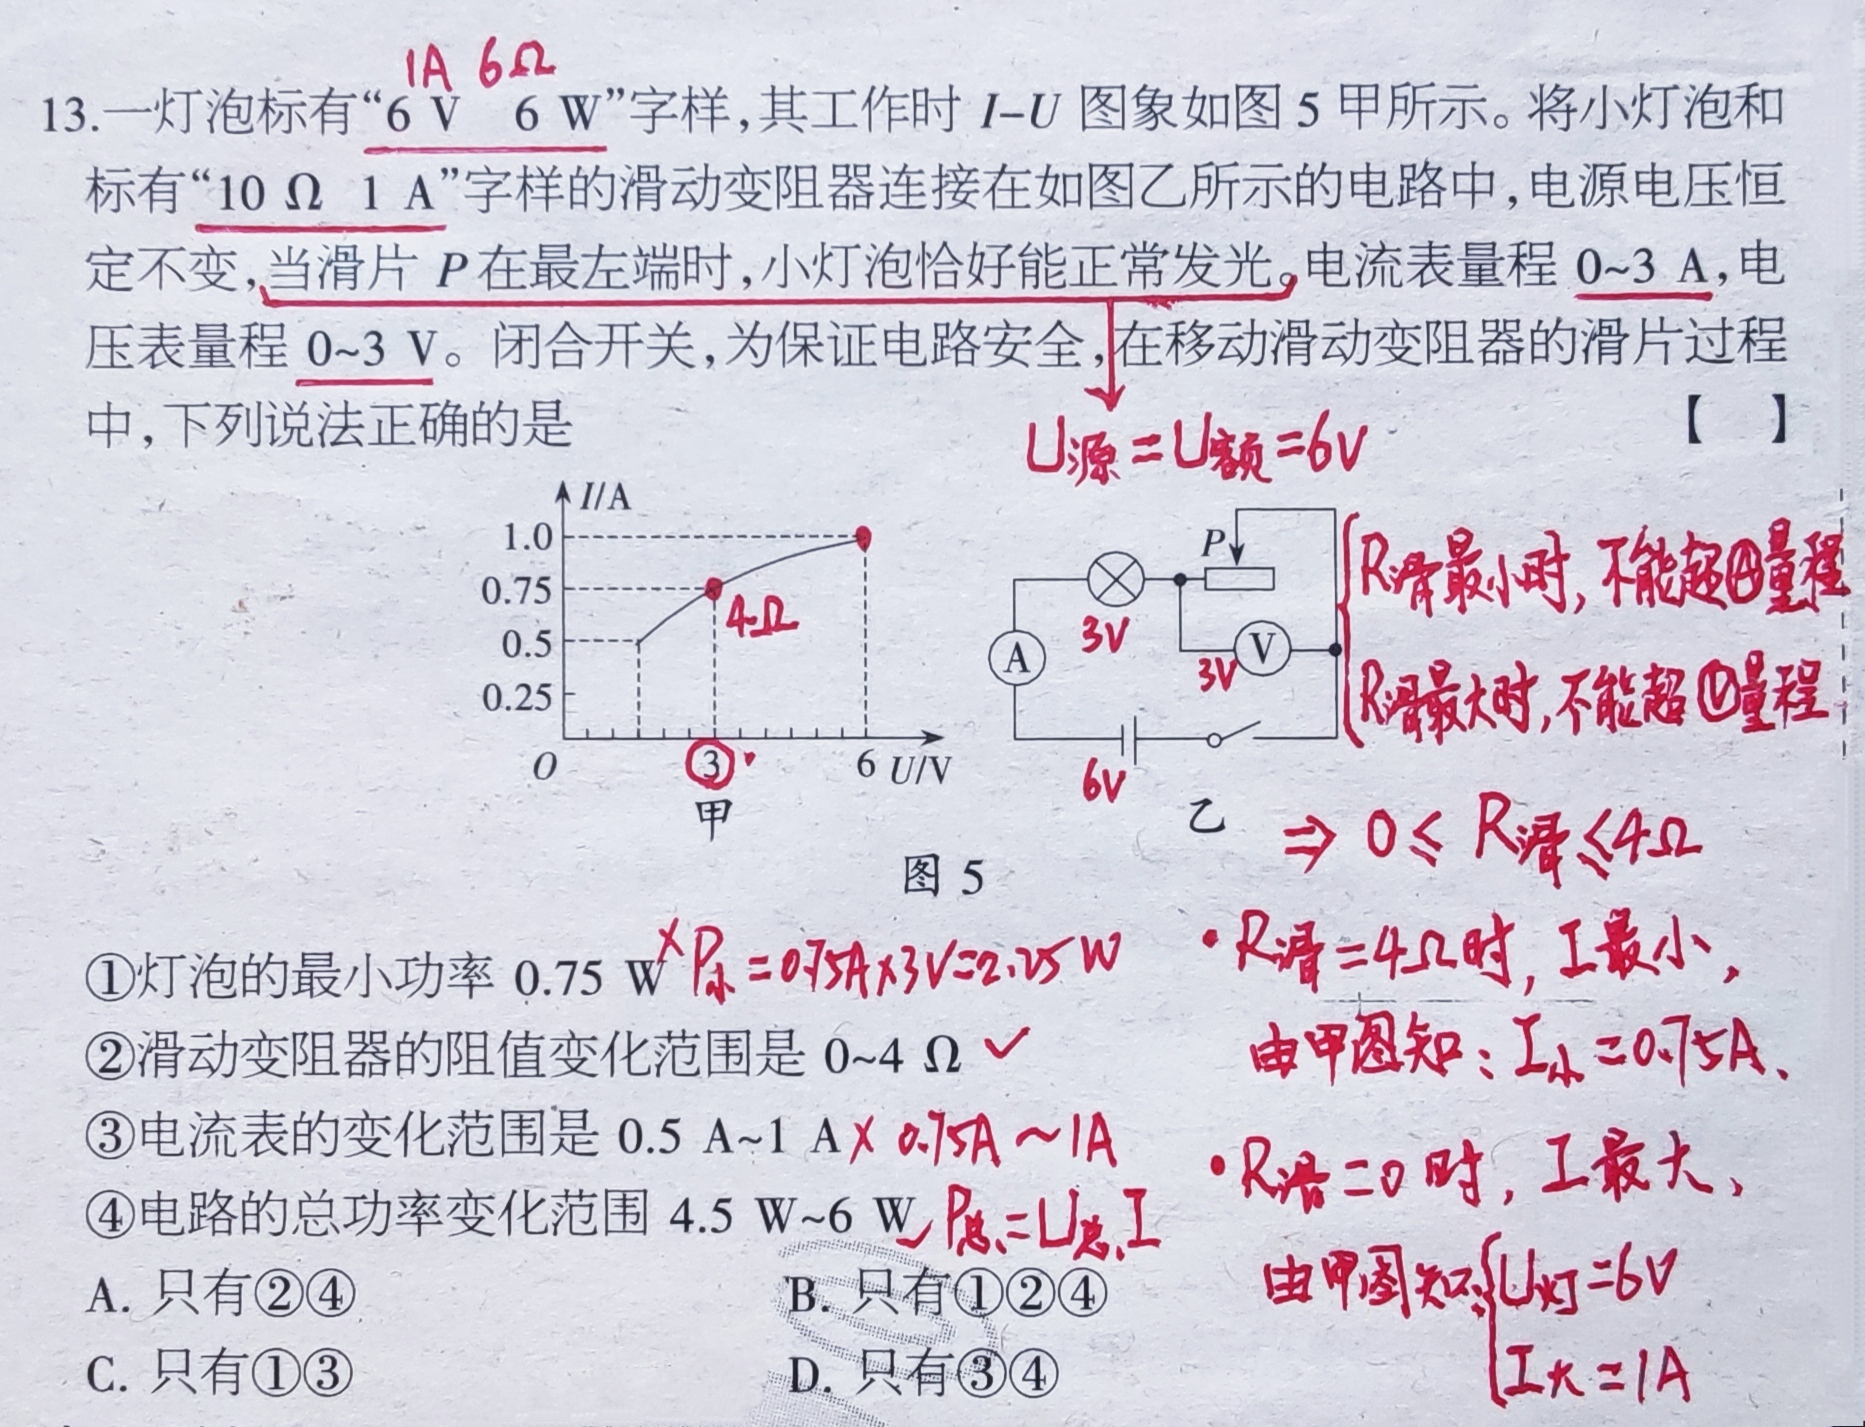 1A 6Ω
13.一灯泡标有“6 V 6 W”字样,其工作时 I-U 图象如图 5 甲所示。将小灯泡和
标有“10 Ω 1 A”字样的滑动变阻器连接在如图乙所示的电路中,电源电压恒
定不变,当滑片 P 在最左端时,小灯泡恰好能正常发光。电流表量程 0~3 A,电
压表量程 0~3 V。闭合开关,为保证电路安全,在移动滑动变阻器的滑片过程
中,下列说法正确的是 【 】
U源=U额=6V
I/A
1.0
0.75
0.5
0.25
O
3
6
U/V
4Ω
甲
P
A
V
3V
3V
6V
乙
R滑最小时,不能超Ⓐ量程
R滑最大时,不能超Ⓥ量程
图 5
⇒ 0≤R滑≤4Ω
①灯泡的最小功率 0.75 W × P小=0.75A×3V=2.25W
②滑动变阻器的阻值变化范围是 0~4 Ω ✓
③电流表的变化范围是 0.5 A~1 A × 0.75A~1A
④电路的总功率变化范围 4.5 W~6 W ✓ P总=U总I
A. 只有②④
B. 只有①②④
C. 只有①③
D. 只有③④
·R滑=4Ω时,I最小,
由甲图知:I小=0.75A、
·R滑=0时,I最大、
由甲图知:{U灯=6V
I大=1A